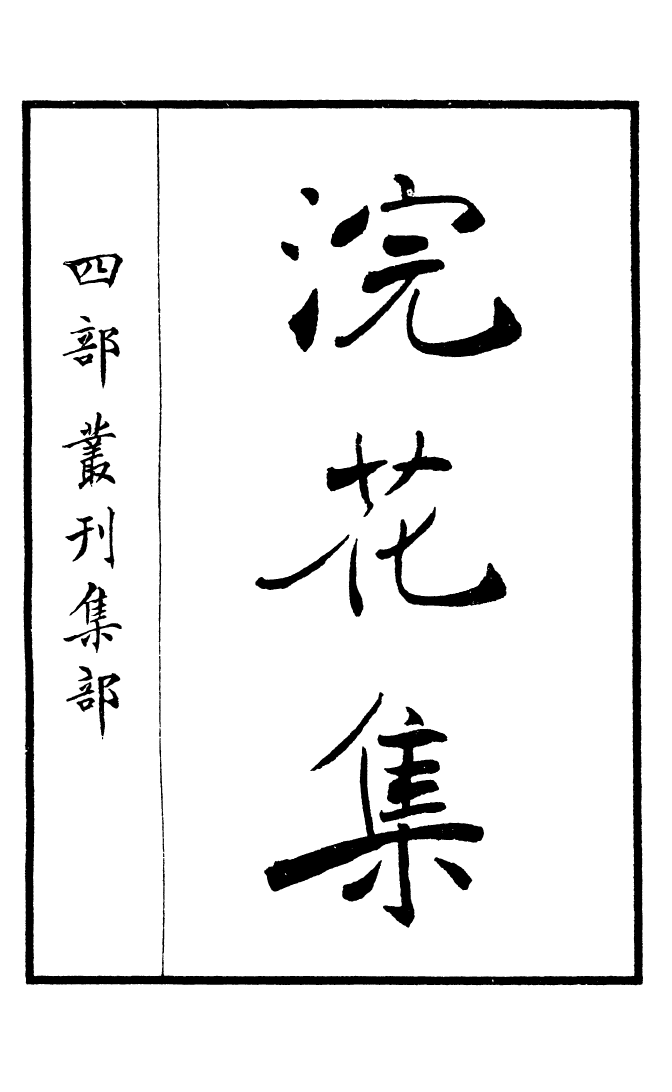 浣花集
四部叢刊集部